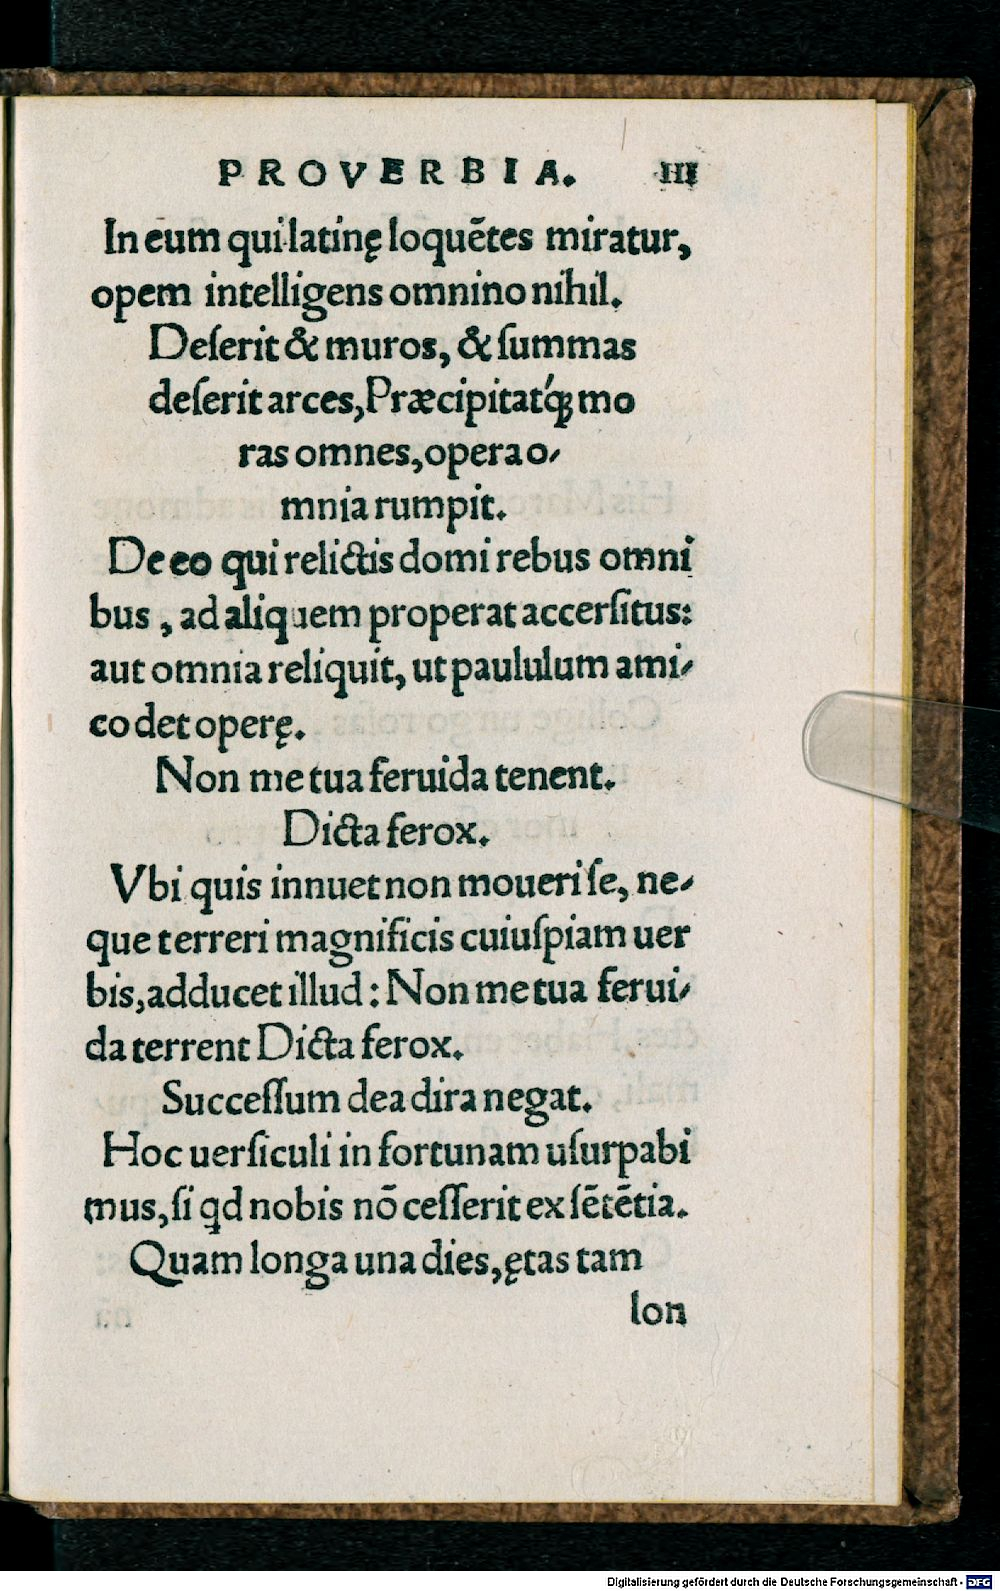 PROVERBIA. III
In eum qui latinę loquētes miratur,
opem intelligens omnino nihil.
Deſerit & muros, & ſummas
deſerit arces, Præcipitat́q; mo
ras omnes, opera o-
mnia rumpit.
De eo qui relictis domi rebus omni
bus, ad aliquem properat accerſitus:
aut omnia reliquit, ut paululum ami-
co det operę.
Non me tua feruida tenent.
Dicta ferox.
Vbi quis innuet non moueri ſe, ne-
que terreri magnificis cuiuſpiam uer
bis, adducet illud: Non me tua ferui-
da terrent Dicta ferox.
Succeſſum dea dira negat.
Hoc uerſiculi in fortunam uſurpabi
mus, ſi qd nobis nō ceſſerit ex ſētētia.
Quam longa una dies, ętas tam
lon
Digitalisierung gefördert durch die Deutsche Forschungsgemeinschaft - DFG